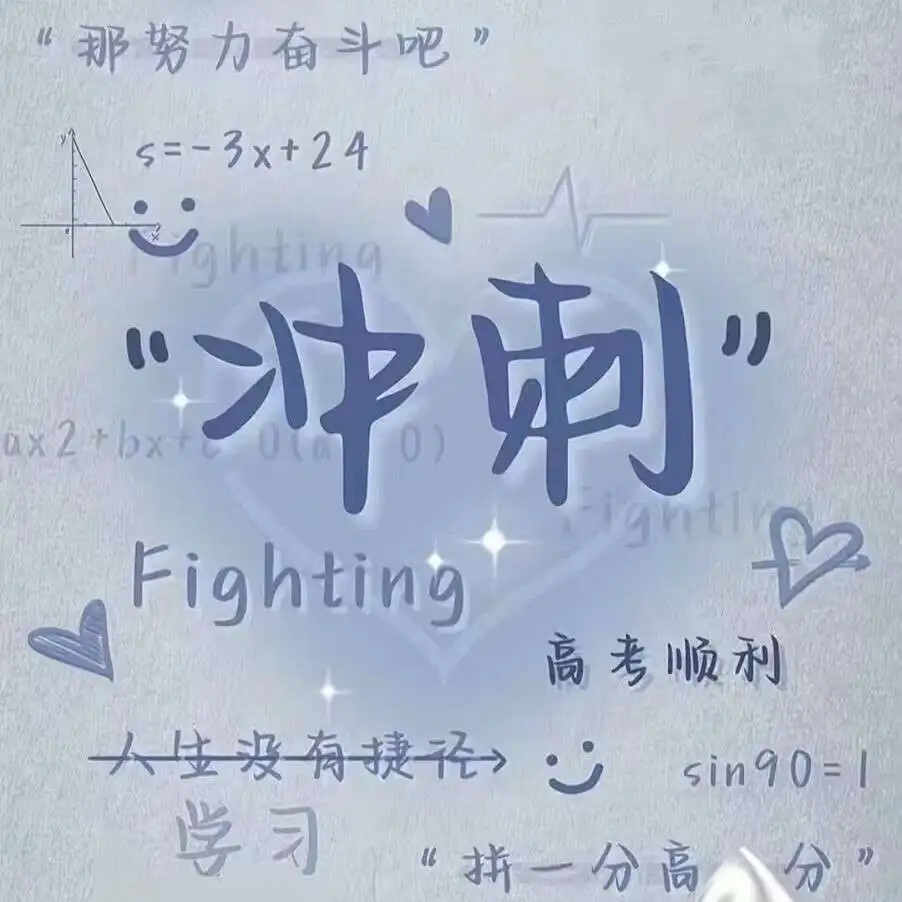 “那努力奋斗吧”
y
s=-3x+24
x
Fighting
“冲刺”
ax2+bx+c 0(a 0)
Fighting
Fighting
高考顺利
人生没有捷径
sin90=1
学习
“拼一分高 分”